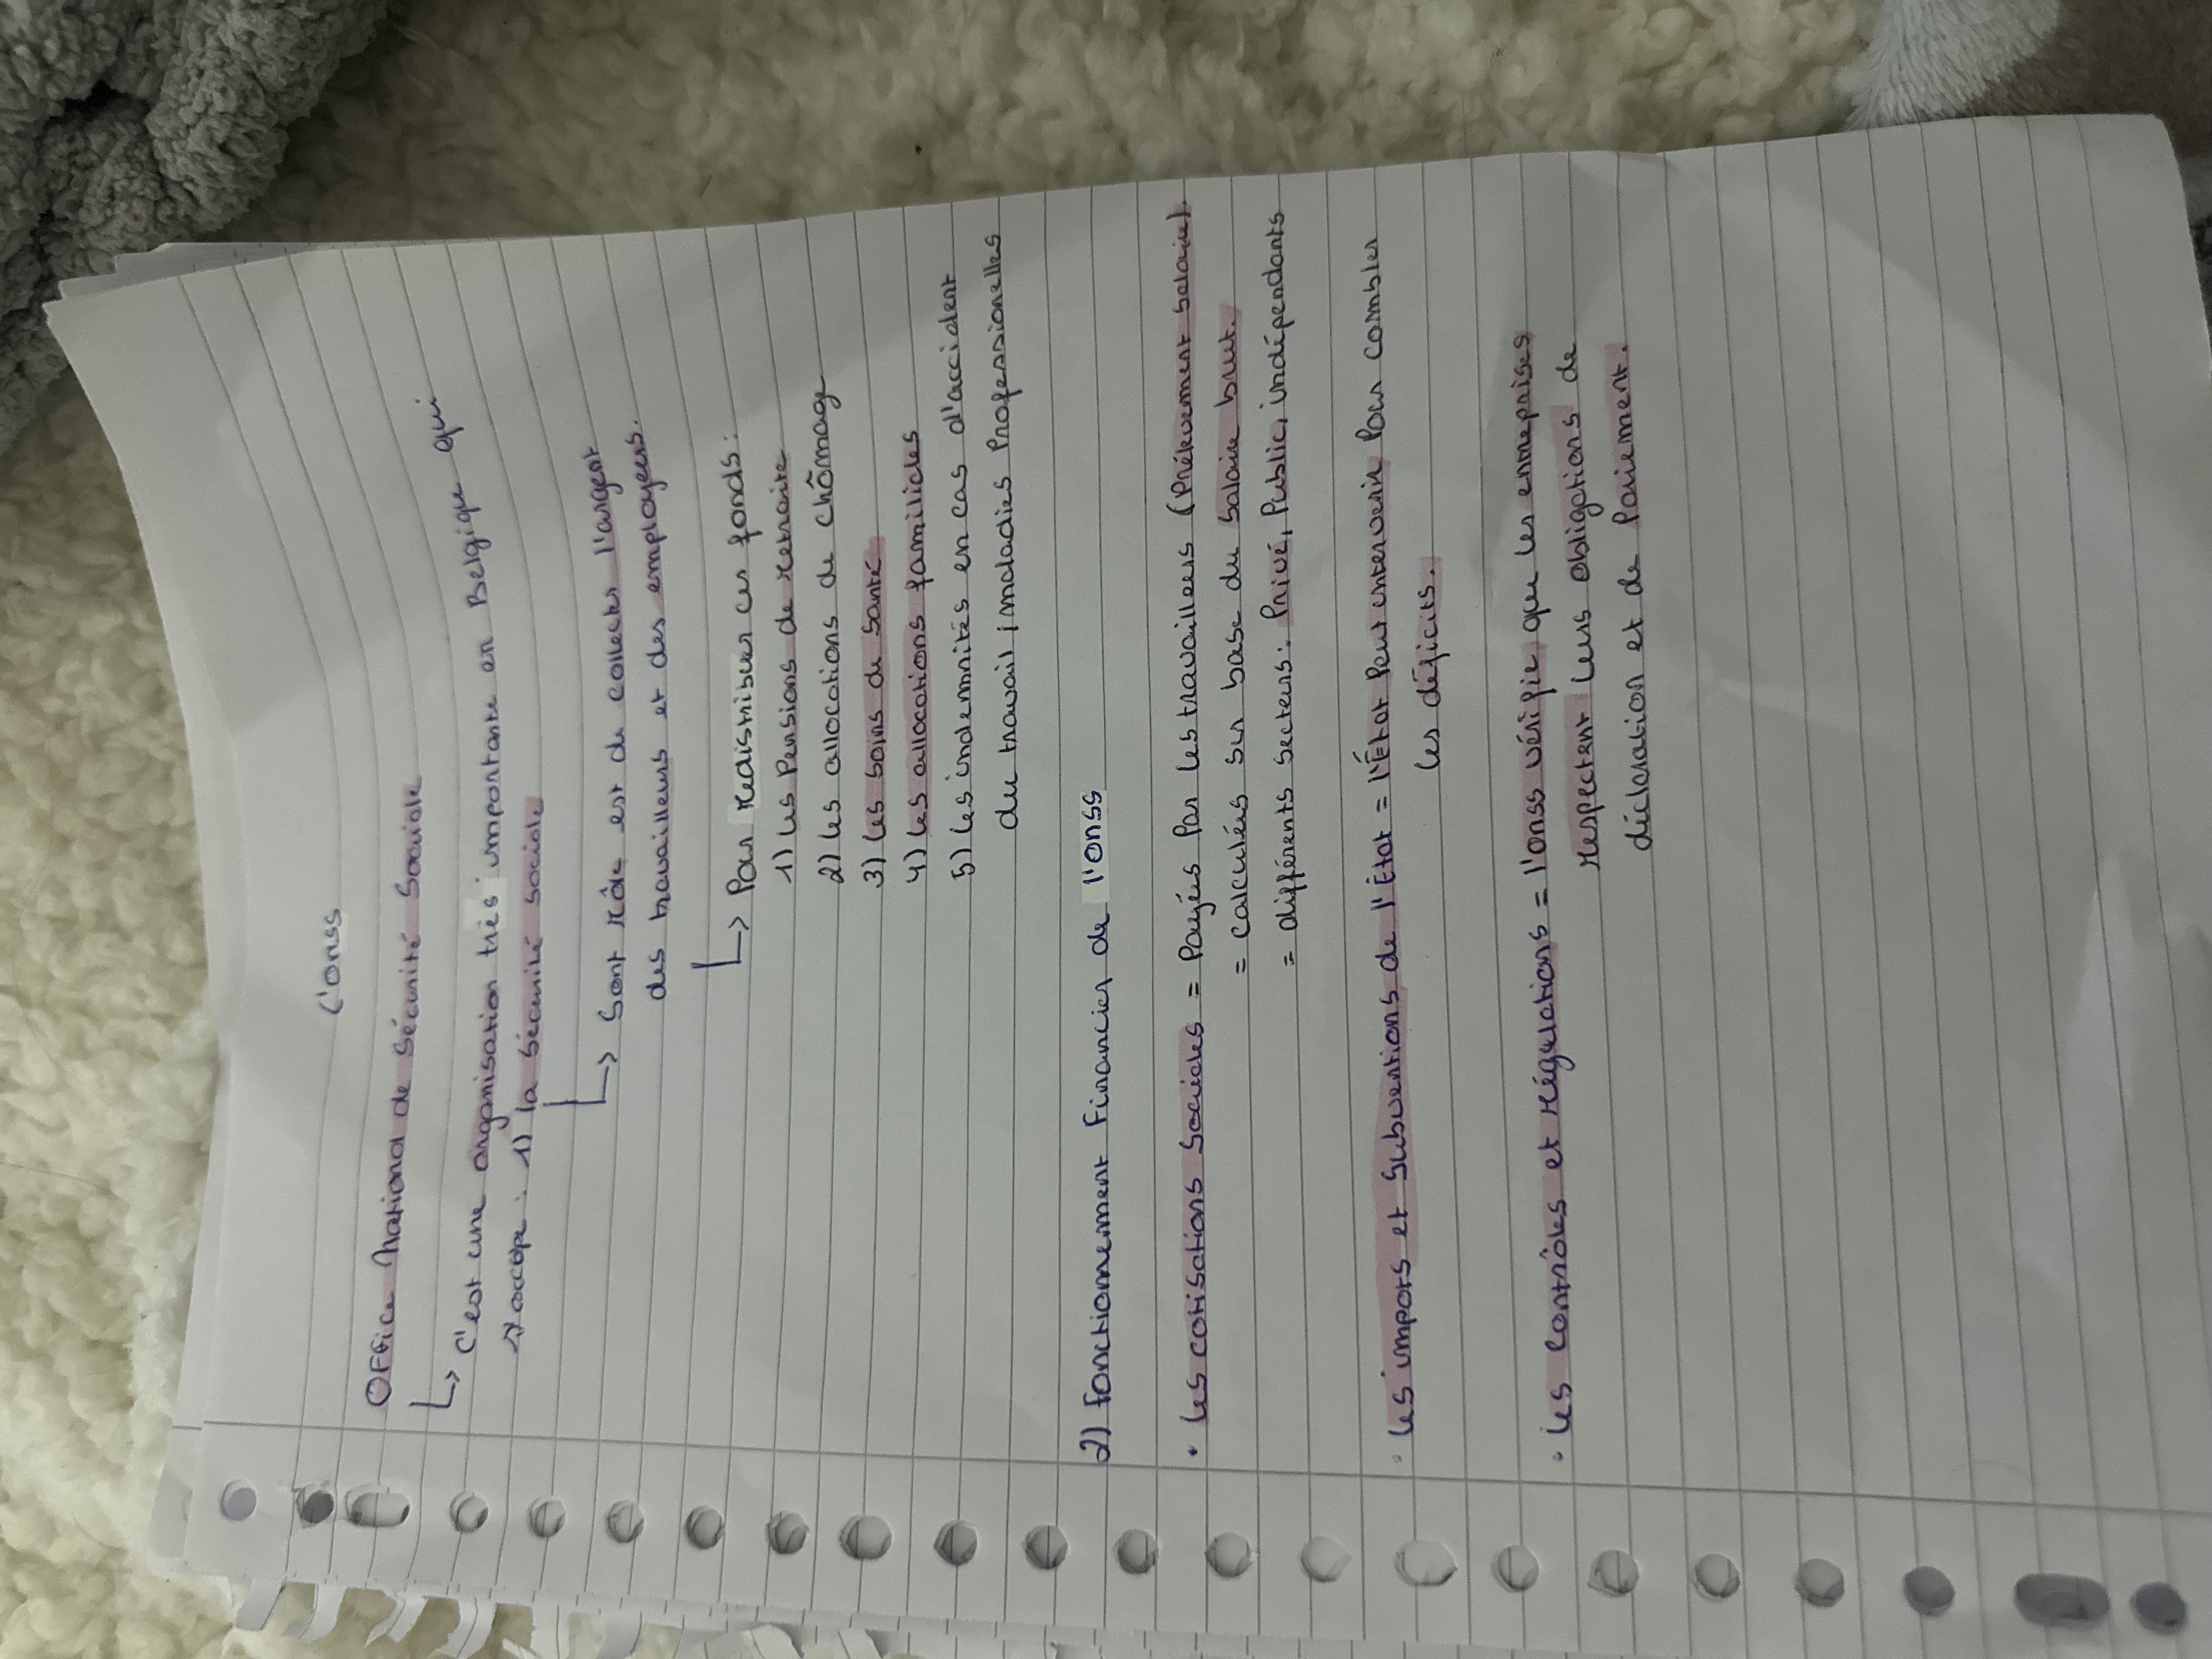 L'onss
Office National de Sécurité Sociale
↳ C'est une organisation très importante en Belgique qui
s'occupe : 1) la Sécurité Sociale
↳ Sont rôle est de collecter l'argent
des travailleurs et des employeurs.
↳ Pour redistribuer ces fonds :
1) les Pensions de retraite
2) les allocations de chômage
3) les soins de Santé
4) les allocations familiales
5) les indemnités en cas d'accident
du travail / maladies Professionelles
2) fonctionnement Financier de l'onss
• les cotisations Sociales = Payées Par les travailleurs (Prélèvement Salaire).
= calculées sur base du Salaire brut.
= différents secteurs : Privé, Public, indépendants
• les impots et Subventions de l'État = l'État Peut intervenir Pour combler
les déficits.
• les Contrôles et régulations = l'onss vérifie que les entreprises
respectent leurs obligations de
déclaration et de Paiement.